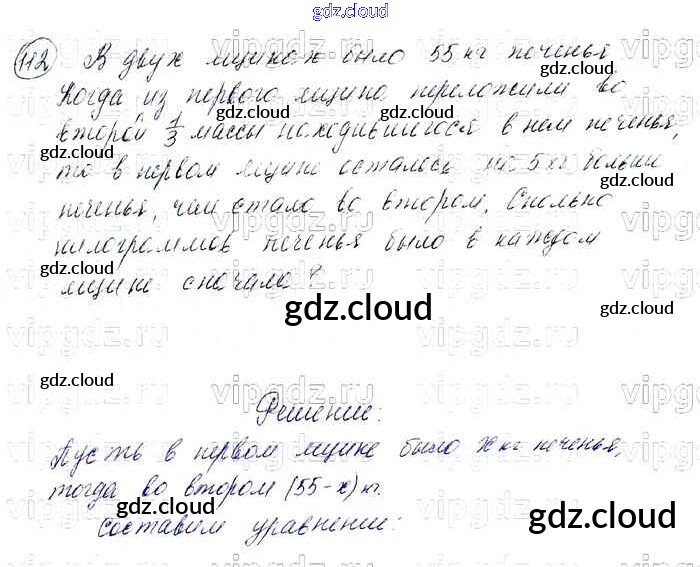 gdz.cloud
112 В двух ящиках было 55 кг печенья
gdz.cloud
Когда из первого ящика переложили во
второй 1/3 массы находившегося в нем печенья,
gdz.cloud
то в первом ящике осталось на 5 кг больше
печенья, чем стало во втором. Сколько
gdz.cloud
килограммов печенья было в каждом
ящике сначала?
gdz.cloud
gdz.cloud
gdz.cloud
gdz.cloud
Решение:
Пусть в первом ящике было x кг печенья,
тогда во втором (55-x) кг.
составим уравнение:
gdz.cloud
gdz.cloud